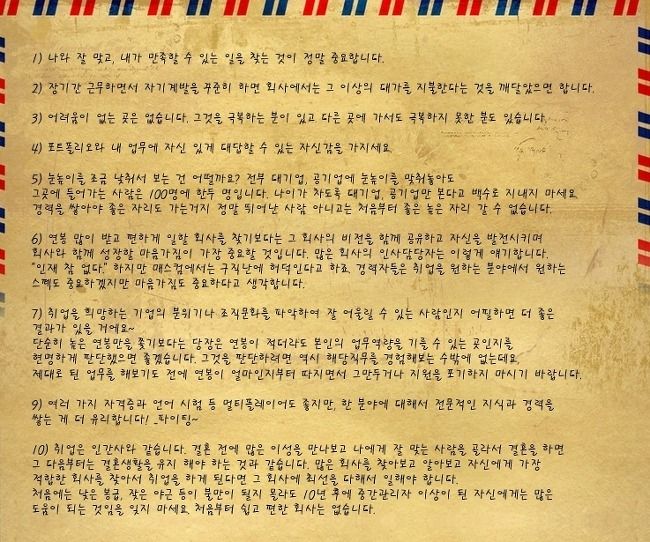 1) 나와 잘 맞고, 내가 만족할 수 있는 일을 찾는 것이 정말 중요합니다.
2) 장기간 근무하면서 자기계발을 꾸준히 하면 회사에서는 그 이상의 대가를 지불한다는 것을 깨달았으면 합니다.
3) 어려움이 없는 곳은 없습니다. 그것을 극복하는 분이 있고 다른 곳에 가서도 극복하지 못한 분도 있습니다.
4) 포트폴리오와 내 업무에 자신 있게 대답할 수 있는 자신감을 가지세요.
5) 눈높이를 조금 낮춰서 보는 건 어떨까요? 전부 대기업, 공기업에 눈높이를 맞춰놓아도
그곳에 들어가는 사람은 100명에 한두 명입니다. 나이가 차도록 대기업, 공기업만 본다고 백수로 지내지 마세요.
경력을 쌓아야 좋은 자리도 가는거지 정말 뛰어난 사람 아니고는 처음부터 좋은 높은 자리 갈 수 없습니다.
6) 연봉 많이 받고 편하게 일할 회사를 찾기보다는 그 회사의 비전을 함께 공유하고 자신을 발전시키며
회사와 함께 성장할 마음가짐이 가장 중요할 것입니다. 많은 회사의 인사담당자는 이렇게 얘기합니다.
"인재 참 없다." 하지만 매스컴에서는 구직난에 허덕인다고 하죠. 경력자들은 취업을 원하는 분야에서 원하는
스펙도 중요하겠지만 마음가짐도 중요하다고 생각합니다.
7) 취업을 희망하는 기업의 분위기나 조직문화를 파악하여 잘 어울릴 수 있는 사람인지 어필하면 더 좋은
결과가 있을 거에요~
단순히 높은 연봉만을 쫓기보다는 당장은 연봉이 적더라도 본인의 업무역량을 기를 수 있는 곳인지를
현명하게 판단했으면 좋겠습니다. 그것을 판단하려면 역시 해당직무를 경험해보는 수밖에 없는데요.
제대로 된 업무를 해보기도 전에 연봉이 얼마인지부터 따지면서 그만두거나 지원을 포기하지 마시기 바랍니다.
9) 여러 가지 자격증과 언어 시험 등 멀티플레이어도 좋지만, 한 분야에 대해서 전문적인 지식과 경력을
쌓는 게 더 유리합니다! -파이팅~
10) 취업은 인간사와 같습니다. 결혼 전에 많은 이성을 만나보고 나에게 잘 맞는 사람을 골라서 결혼을 하면
그 다음부터는 결혼생활을 유지 해야 하는 것과 같습니다. 많은 회사를 찾아보고 알아보고 자신에게 가장
적합한 회사를 찾아서 취업을 하게 된다면 그 회사에 최선을 다해서 일해야 합니다.
처음에는 낮은 봉급, 잦은 야근 등이 불만이 될지 몰라도 10년 후에 중간관리자 이상이 된 자신에게는 많은
도움이 되는 것임을 잊지 마세요. 처음부터 쉽고 편한 회사는 없습니다.